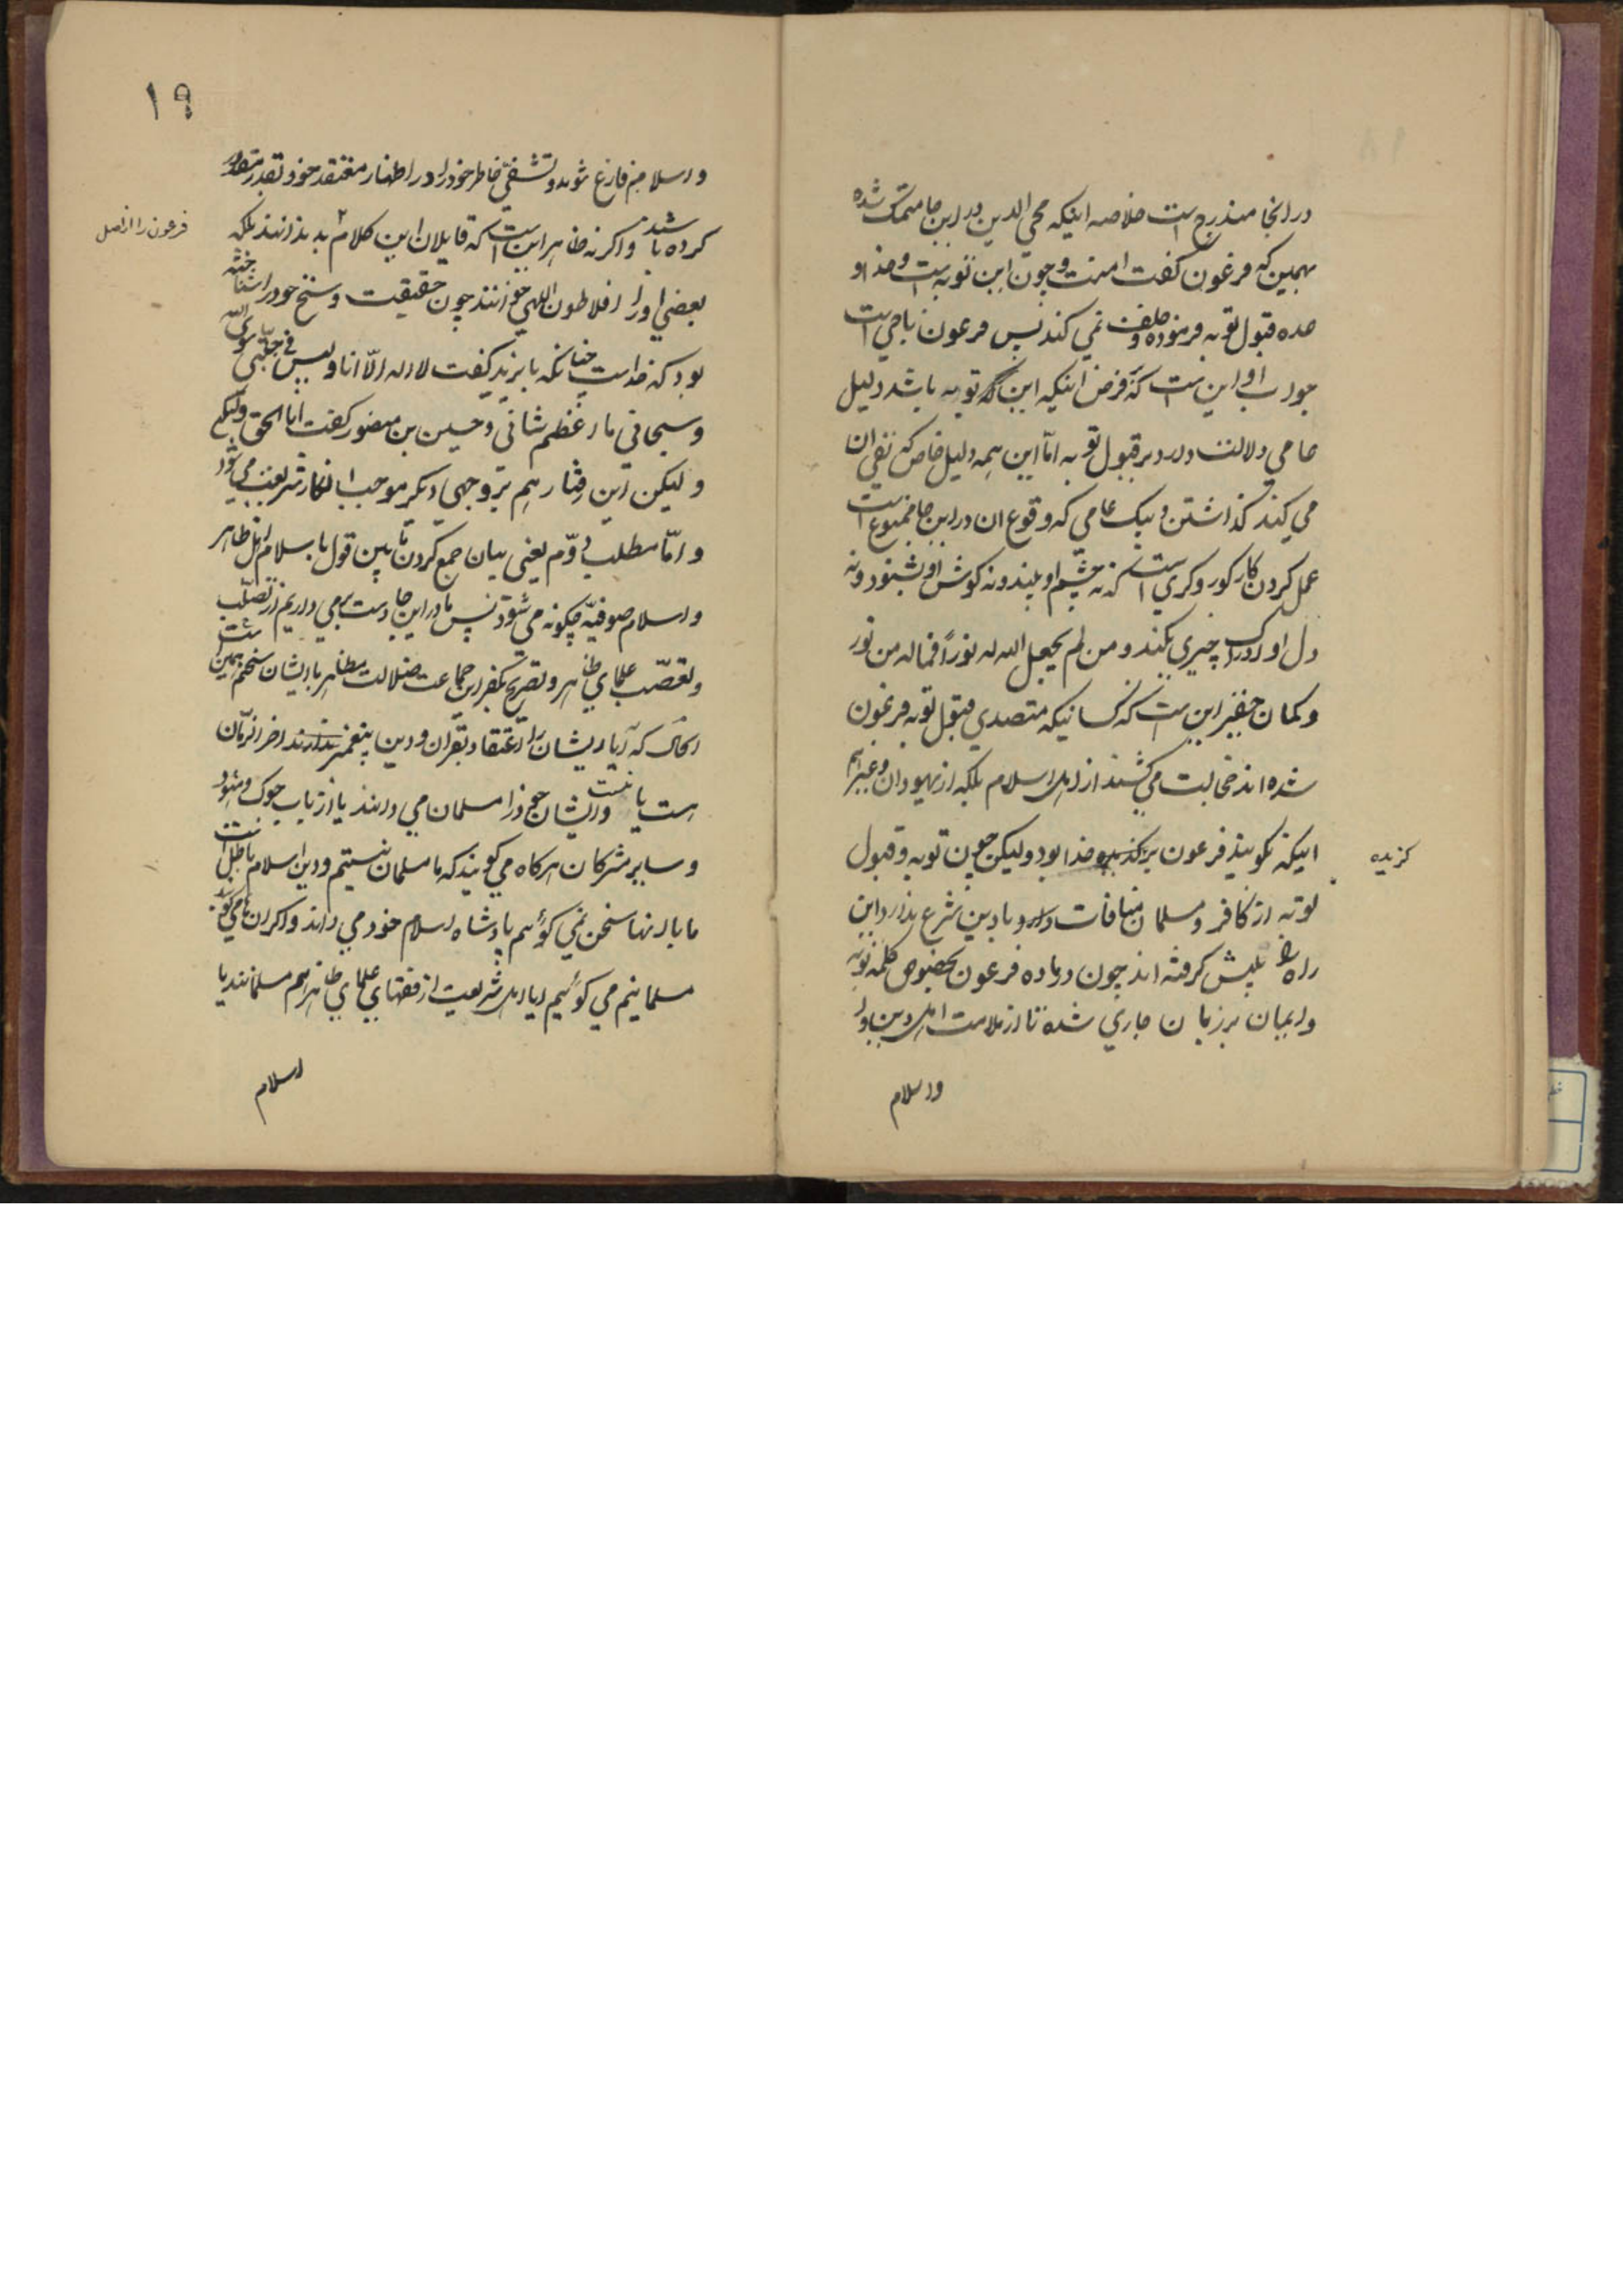 در انجا مندرج است خلاصه اینکه محی الدین در این جا متمسک شده
بهمین که فرعون گفت امنت و چون این توبه است و خدا و
عده قبول توبه فرموده و خلف نمی کند پس فرعون ناجی است
جواب او این است که فرض اینکه این توبه باشد دلیل
عامی دلالت دارد بر قبول توبه امّا این همه دلیل خاص که نفی ان
می کند گذاشتن و بیک عامی که وقوع ان در این جا ممنوع است
عمل کردن کار کور و کری است که نه چشم او بیند و نه گوش او شنود و نه
دل او ادراک چیزی بکند و من لم یجعل الله له نوراً فما له من نور
و کمان حقیر این است که کسانیکه متصدی قبول توبه فرعون
شده اند خجالت می کشند از اهل اسلام بلکه از یهودان و غیر هم
اینکه بگویند فرعون خدا بود و لیکن چون توبه و قبول
گزیده
توبه از کافر و مسلمان منافات دارد با دین شرع ندارد این
راه را پیش گرفته اند چون در ماده فرعون بخصوص کلمه توبه
و ایمان بر زبان جاری شده تا از ملامت اهل دین
و اسلام
۱۹
و اسلام فارغ شوند و تشفّی خاطر خود را در اظهار معتقد خود بقدر مقدور
کرده باشند و اگر نه ظاهر این است که قایلان این کلام بد ندانند بلکه
فرعون را از اصل
بعضی او را افلاطون الهی خوانند چون حقیقت و سنخ خود را شناخته
بود که خداست چنانکه بایزید گفت لا اله الّا انا و لیس فی جبّتی سوی الله
و سبحانی ما اعظم شانی و حسین بن منصور گفت انا الحق
و لیکن این رفتار هم بروجهی دیگر موجب انکار شریعت می شود
و امّا مطلب دوّم یعنی بیان جمع کردن ما بین قول باسلام اهل ظاهر
و اسلام صوفیّه چگونه می شود پس ما در این جا دست برمی داریم از تصلّب
و تعصّب علمای ظاهر و تصریح بکفر این جماعت ضلالت مظاهر با ایشان سخنم همین است
که آیا ایشان را اعتقاد بقران و دین پیغمبر اخر الزمان
هست یا نیست و ایشان خود را مسلمان می دانند یا از باب جوک و هنود
و سایر مشرکان هرگاه می گویند که ما مسلمان نیستیم و دین اسلام باطل است
ما با اینها سخن نمی گوئیم پادشاه اسلام خود می داند و اگر می گویند
مسلمانیم می گوئیم ایا اهل شریعت از فقهای علمای ظاهر هم مسلمانند یا
اسلام